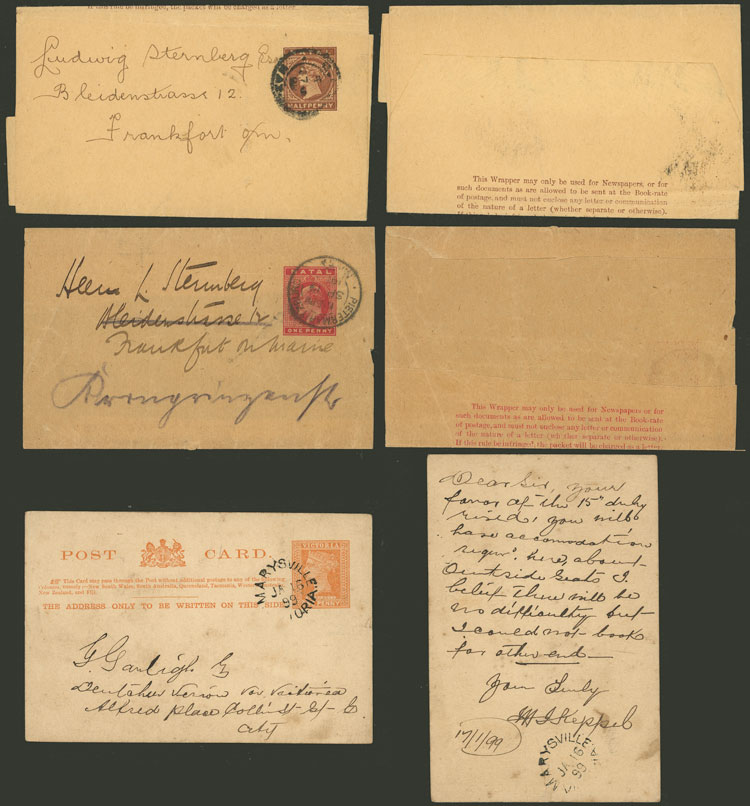 if this rule be infringed, the packet will be charged as a letter.
Ludwig Sternberg Esq
Bleidenstrasse 12.
Frankfort o/m.
HALFPENNY
This Wrapper may only be used for Newspapers, or for
such documents as are allowed to be sent at the Book-rate
of postage, and must not enclose any letter or communication
of the nature of a letter (whether separate or otherwise).
NATAL
ONE PENNY
Herrn L. Sternberg
Bleidenstrasse 12
Frankfurt
This Wrapper may only be used for Newspapers or for
such documents as are allowed to be sent at the Book-rate
of postage, and must not enclose any letter or communication
of the nature of a letter (whether separate or otherwise).
If this rule be infringed, the packet will be charged as a letter.
POST CARD.
VICTORIA
This Card may pass through the Post without additional postage to any of the following
Colonies, namely:—New South Wales, South Australia, Queensland, Tasmania, Western
New Zealand, and Fiji.
THE ADDRESS ONLY TO BE WRITTEN ON THIS SIDE
PENNY
MARYSVILLE
JA 16
99
VICTORIA
Alfred place Collins St
City
Dear Sir, your
favor of the 15th duly
you will
have accomodation
here, about
Outside Seats I
belief there will be
no difficulty but
I could not book
for other end—
17/1/99
MARYSVILLE
JA 16
99